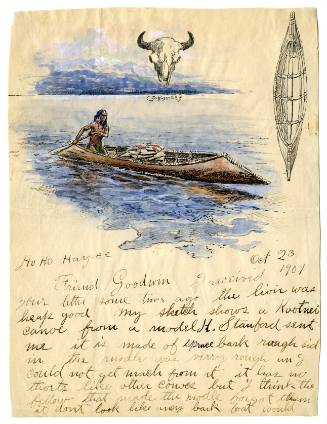 Ho Ho Hay-ee
Oct 23
1907
Friend Goodwin I received
your letter some time ago the livir was
heap good my sketch shows a Kootnei
canoe from a model H. Stanford sent
me it is made of spruce bark rough sid
in the modle was verry rough an I
could not get much from it it has no
thorts like other canoes but I think the
fellow that made the modle forgot them
it dont look like aney bark boat would